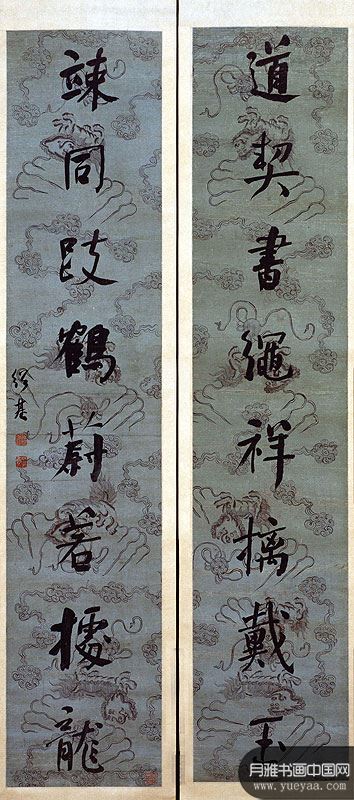 道契書繩祥摛戴玉
竦同跂鶴蔚若據龍
月雅书画中国网
www.yueyaa.com